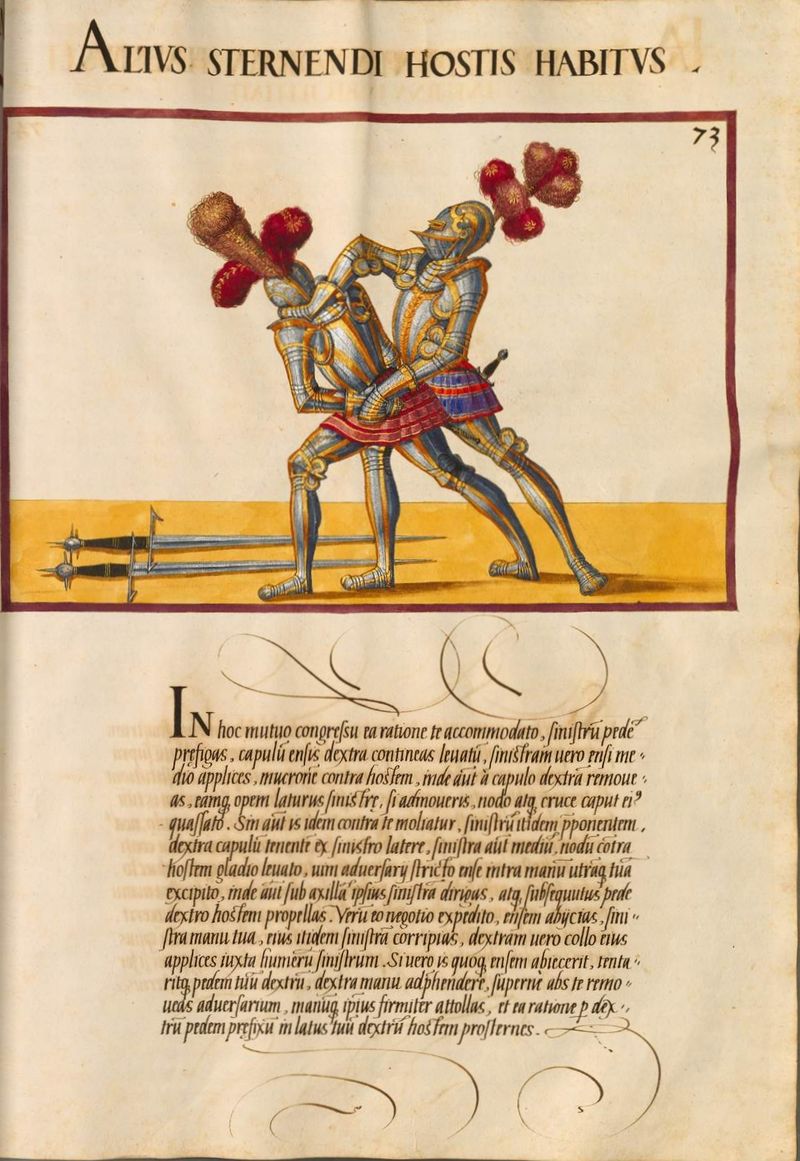 ALIVS STERNENDI HOSTIS HABITVS .
73
IN hoc mutuo congressu ea ratione te accommodato, sinistrũ pedẽ
prefigas, capulũ ensis dextra contineas leuatũ, sinistram uero ensi me-
dio applices, mucronẽ contra hostem, inde aũt à capulo dextrã remoue-
as, eamq, opem laturus sinistre, si admoueris, nodo atq, cruce caput eiꝰ
quassato. Sin aũt is idem contra te moliatur, sinistrũ itidem pponentem,
dextra capulũ tenente ex sinistro latere, sinistra aũt mediũ, nodũ cõtra
hostem gladio leuato, uim aduersarÿ stricto ense intra manũ utraq, tuã
excipito, inde aũt sub axillã ipsius sinistrã dirigas, atq, subsequutus pede
dextro hostem propellas. Verũ eo negotio expedito, ensem abÿcias, sini-
stra manu tua, eius itidem sinistrã corripias, dextram uero collo eius
applices iuxta humerũ sinistrum. Si uero is quoq, ensem abiecerit, tenta-
ritq, pedem tuũ dextrũ, dextra manu adphendere, supernè abs te remo-
ueas aduersarium, manũq, ipius firmiter attollas, et ea ratione p dex-
trũ pedem prefixũ in latus tuũ dextrũ hostem prosternes.